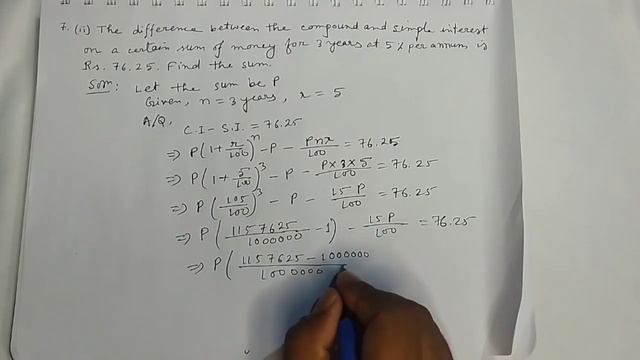 7. (ii) The difference between the compound and simple interest
on a certain sum of money for 3 years at 5% per annum is
Rs. 76.25. Find the sum.
Som: Let the sum be P
Given, n = 3 years, r = 5
A/Q,
C.I - S.I. = 76.25
⇒ P(1 + r/100)^n - P - Pnr/100 = 76.25
⇒ P(1 + 5/100)^3 - P - P×3×5/100 = 76.25
⇒ P(105/100)^3 - P - 15P/100 = 76.25
⇒ P(1157625/1000000 - 1) - 15P/100 = 76.25
⇒ P(1157625-1000000/1000000